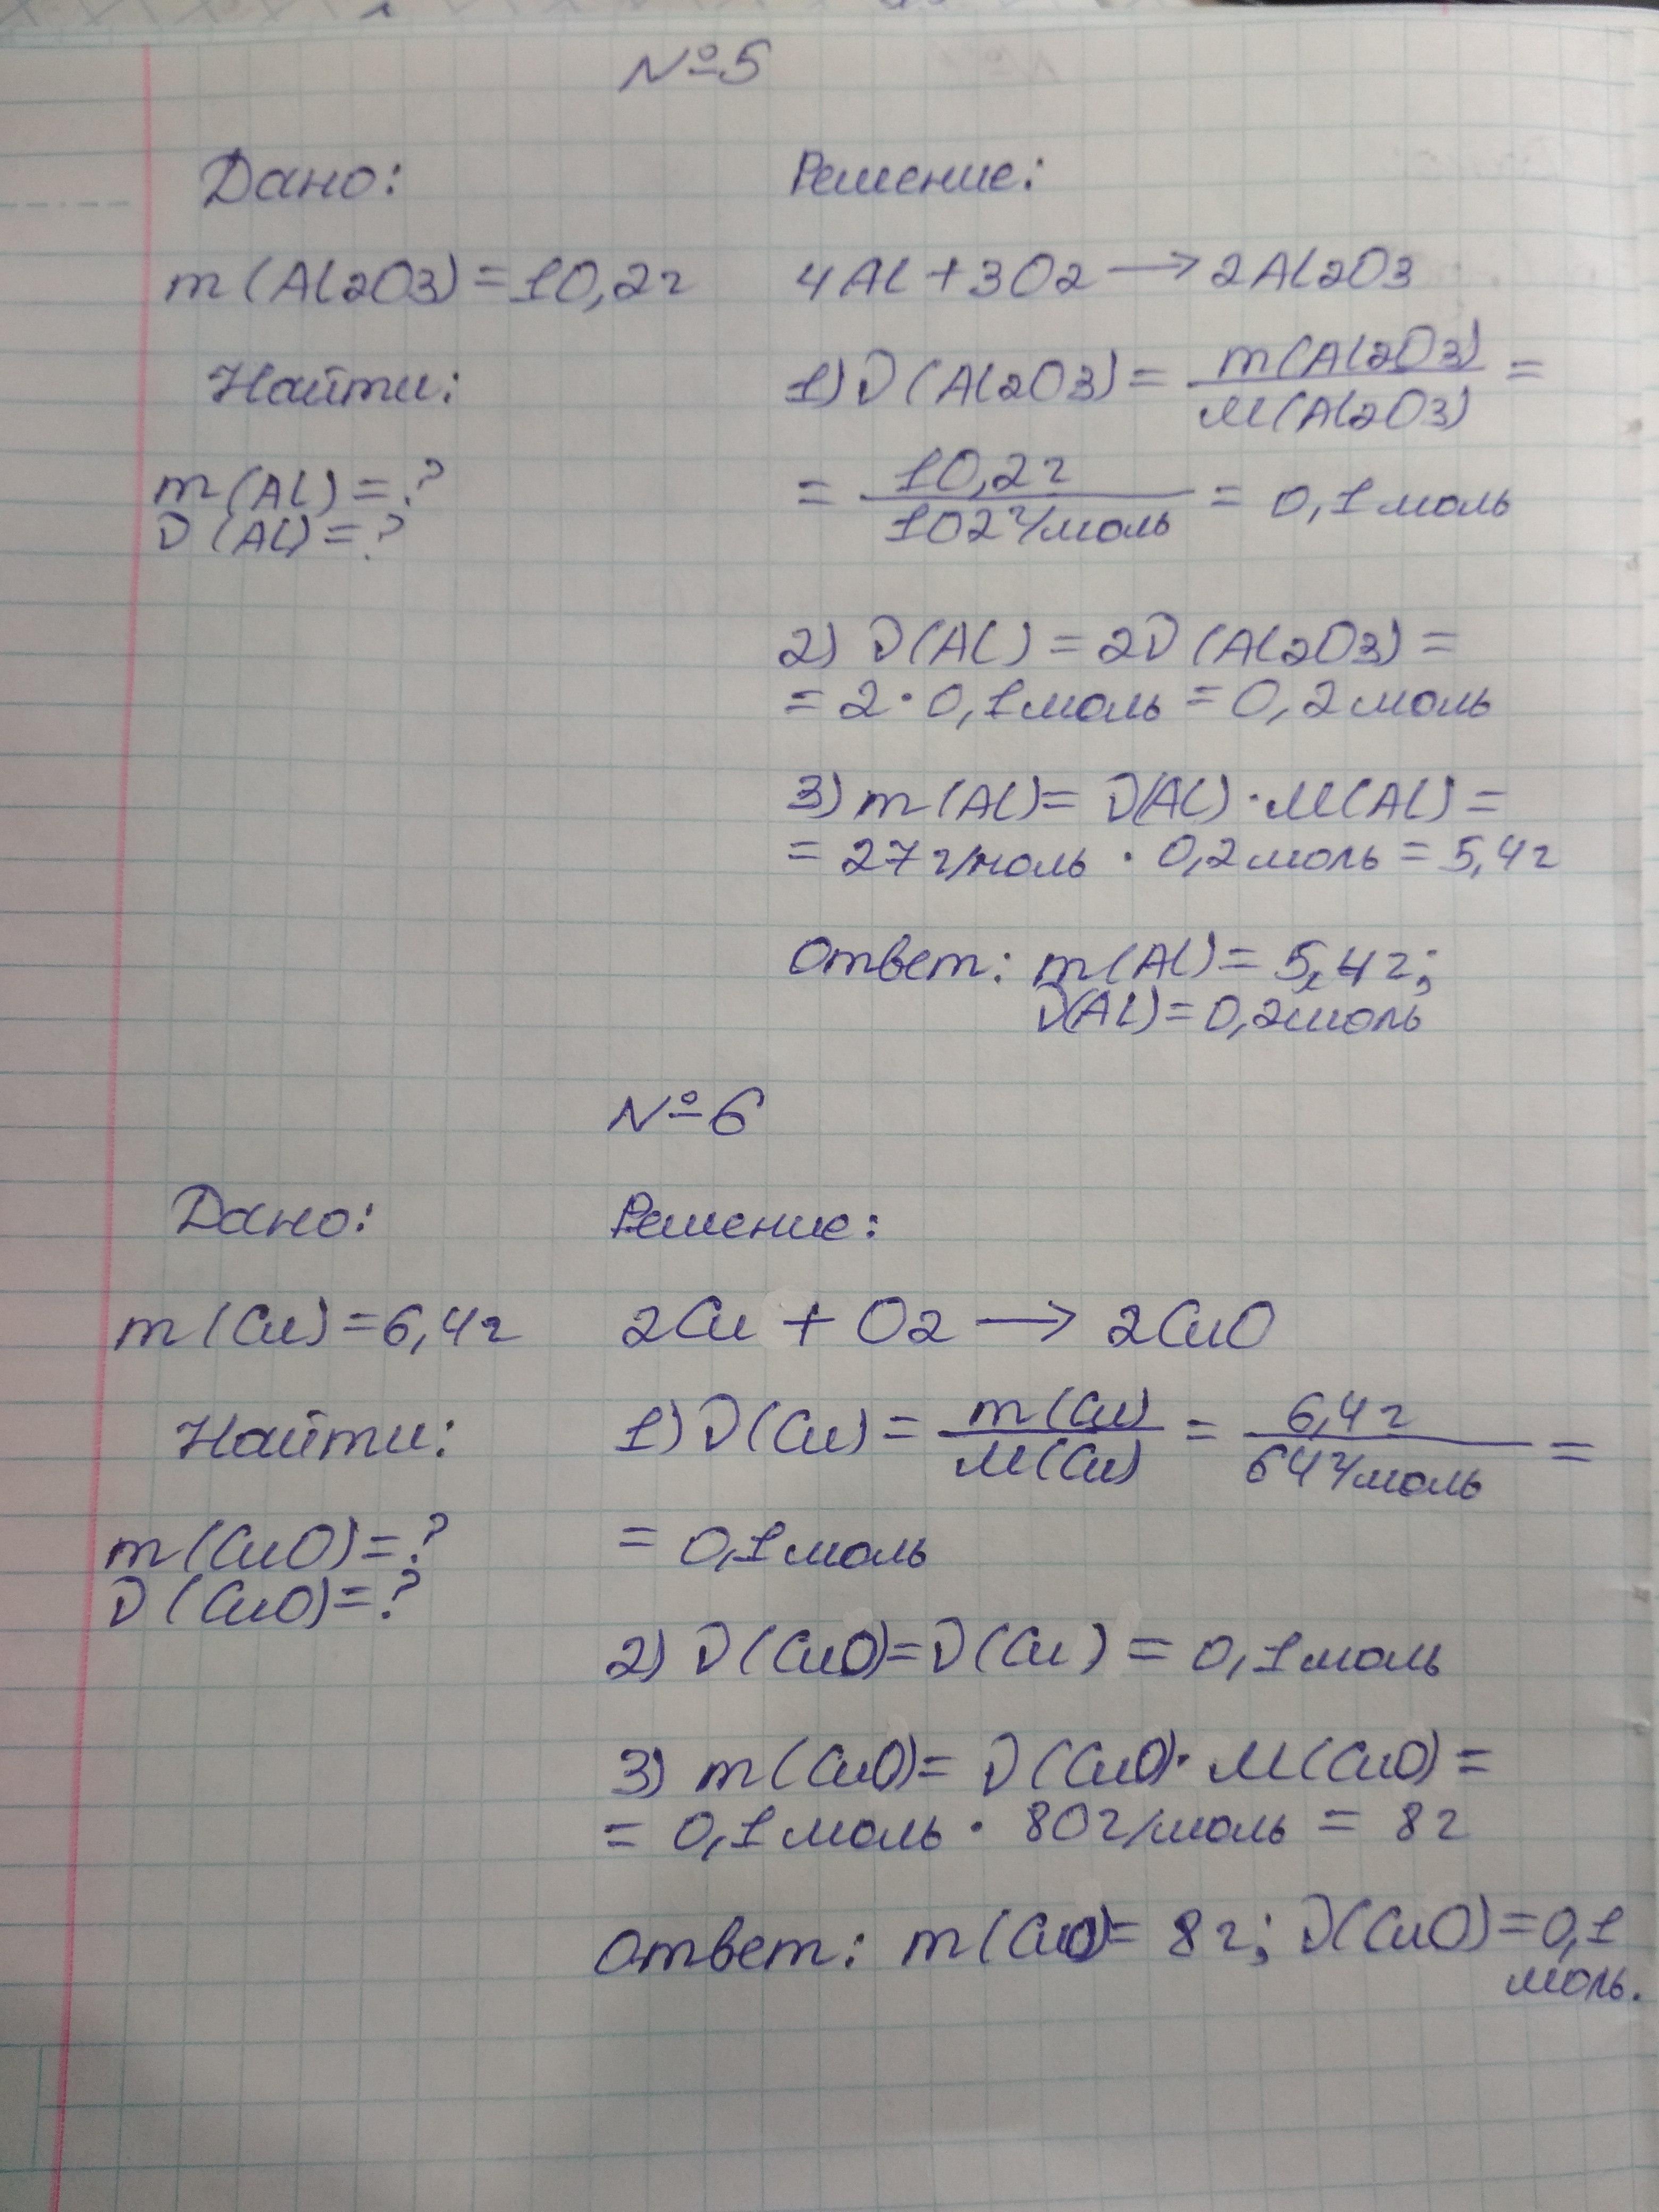 №5
Дано:
m(Al2O3)=10,2г
Найти:
m(Al)=?
D(Al)=?
Решение:
4Al+3O2→2Al2O3
1)D(Al2O3)=m(Al2O3)/M(Al2O3)=
=10,2г/102г/моль=0,1моль
2) D(Al)=2D(Al2O3)=
=2·0,1моль=0,2моль
3)m(Al)=D(Al)·M(Al)=
=27г/моль·0,2моль=5,4г
Ответ: m(Al)=5,4г;
D(Al)=0,2моль
№6
Дано:
m(Cu)=6,4г
Найти:
m(CuO)=?
D(CuO)=?
Решение:
2Cu+O2→2CuO
1)D(Cu)=m(Cu)/M(Cu)=6,4г/64г/моль=
=0,1моль
2) D(CuO)=D(Cu)=0,1моль
3) m(CuO)=D(CuO)·M(CuO)=
=0,1моль·80г/моль=8г
Ответ: m(CuO)=8г; D(CuO)=0,1
моль.